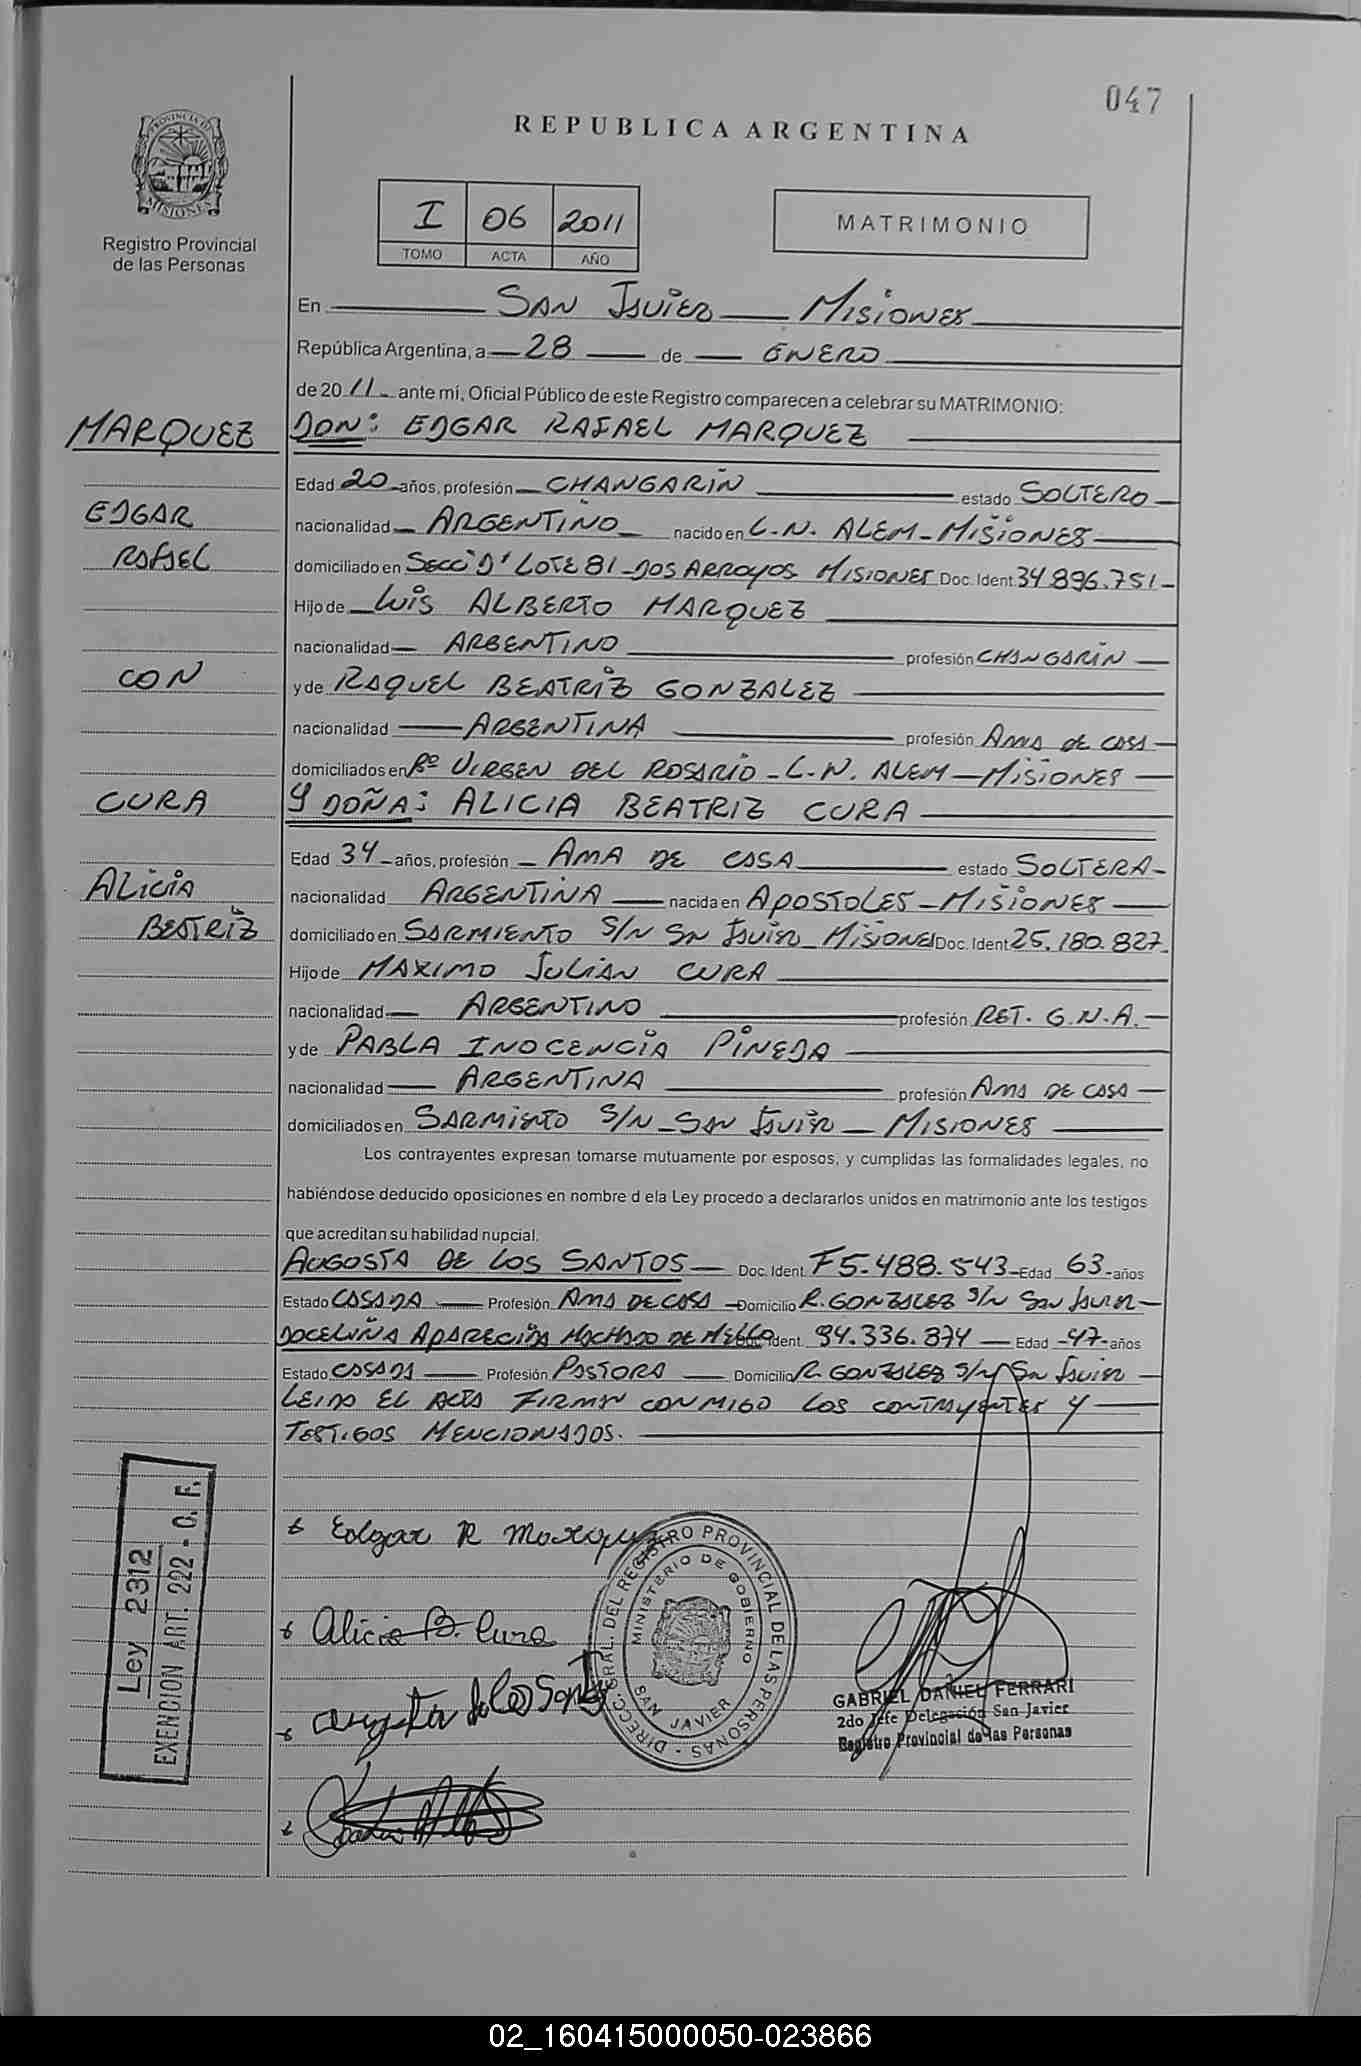 047
REPUBLICA ARGENTINA
PROVINCIA DE
MISIONES
Registro Provincial
de las Personas
I 06 2011
TOMO ACTA AÑO
MATRIMONIO
En SAN JAVIER MISIONES
República Argentina, a 28 de ENERO
de 2011 ante mí, Oficial Público de este Registro comparecen a celebrar su MATRIMONIO:
MARQUEZ
DON: EDGAR RAFAEL MARQUEZ
Edad 20 años, profesión CHANGARIN estado SOLTERO
EDGAR
nacionalidad ARGENTINO nacido en L.N. ALEM - MISIONES
RAFAEL
domiciliado en SECC D' LOTE 81 - DOS ARROYOS MISIONES Doc. Ident. 34896.751
Hijo de LUIS ALBERTO MARQUEZ
nacionalidad ARGENTINO profesión CHANGARIN
CON
y de RAQUEL BEATRIZ GONZALEZ
nacionalidad ARGENTINA profesión AMA DE CASA
domiciliados en Bº VIRGEN DEL ROSARIO - L.N. ALEM - MISIONES
CURA
Y DOÑA: ALICIA BEATRIZ CURA
Edad 34 años, profesión AMA DE CASA estado SOLTERA
ALICIA
nacionalidad ARGENTINA nacida en APOSTOLES - MISIONES
BEATRIZ
domiciliado en SARMIENTO S/N SAN JAVIER MISIONES Doc. Ident. 25.180.827
Hijo de MAXIMO JULIAN CURA
nacionalidad ARGENTINO profesión RET. G.N.A.
y de PABLA INOCENCIA PINEDA
nacionalidad ARGENTINA profesión AMA DE CASA
domiciliados en SARMIENTO S/N - SAN JAVIER - MISIONES
Los contrayentes expresan tomarse mutuamente por esposos, y cumplidas las formalidades legales, no
habiéndose deducido oposiciones en nombre d ela Ley procedo a declararlos unidos en matrimonio ante los testigos
que acreditan su habilidad nupcial.
AUGOSTA DE LOS SANTOS Doc. Ident. F5.488.543 Edad 63 años
Estado CASADA Profesión AMA DE CASA Domicilio R. GONZALEZ S/N SAN JAVIER
JOCELINA APARECIDA MACHADO DE MELLO Ident. 94.336.874 Edad 47 años
Estado CASADA Profesión PASTORA Domicilio R. GONZALEZ S/N SAN JAVIER
LEIDO EL ACTA FIRMAN CONMIGO LOS CONTRAYENTES Y
TESTIGOS MENCIONADOS.
Ley 2312
EXENCION ART. 222 - C. F.
Edgar R Marquez
Alicia B. Cura
augosta de los Santos
DIREC. GRAL. DEL REGISTRO PROVINCIAL DE LAS PERSONAS
MINISTERIO DE GOBIERNO
SAN JAVIER
GABRIEL DANIEL FERRARI
2do Jefe Delegación San Javier
Registro Provincial de las Personas
02_160415000050-023866